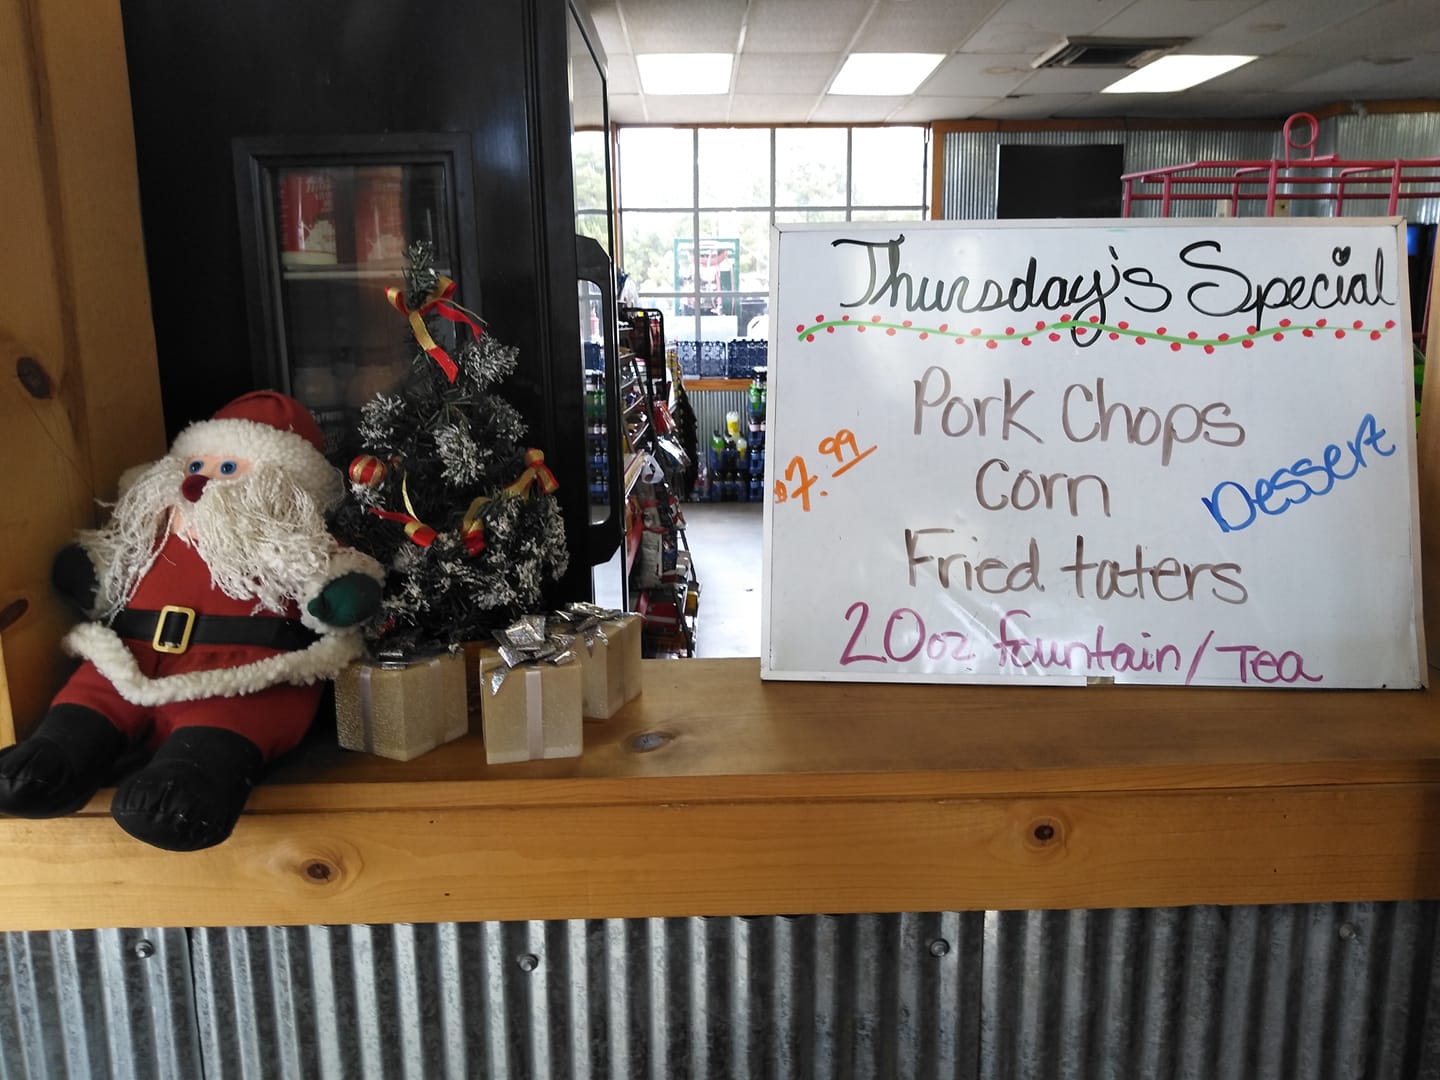 Thursday's Special
Pork Chops
$7.99
Corn
Dessert
Fried taters
20oz fountain/Tea